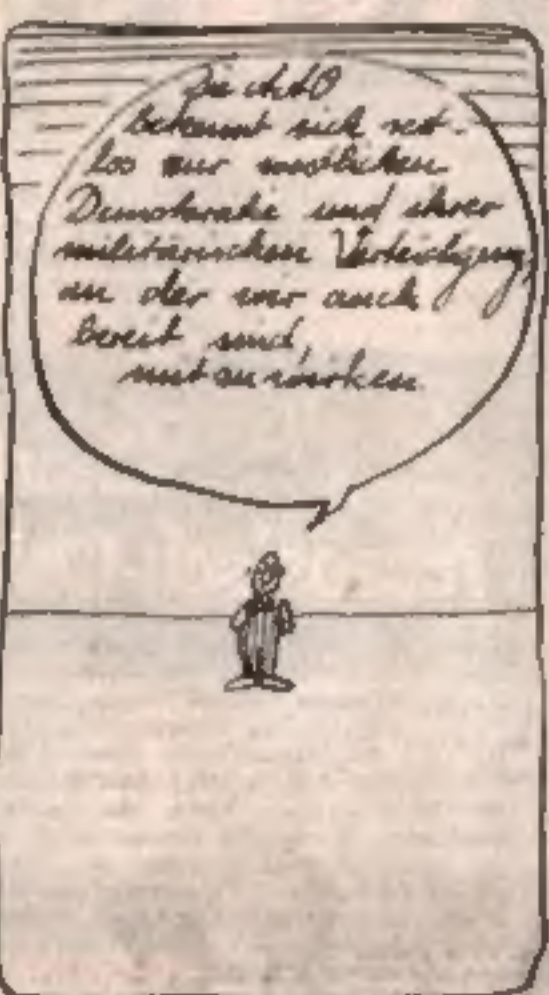 Die
bekennt sich rest-
los zur westlichen
Demokratie und ihrer
militärischen Verteidigung,
an der wir auch
bereit sind,
mitzuwirken